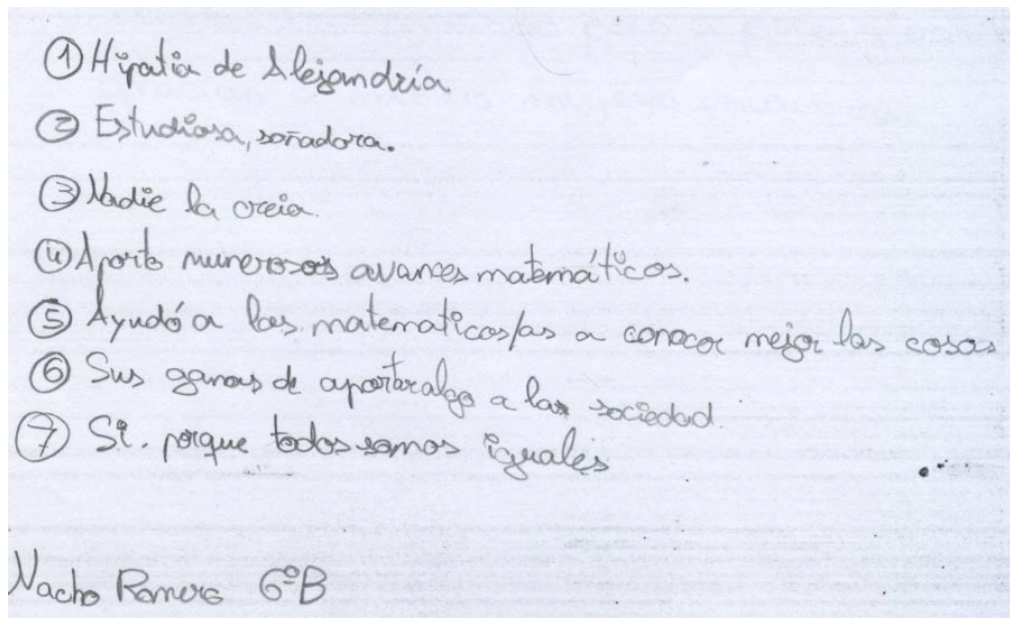 ① Hipatia de Alejandría
② Estudiosa, soñadora.
③ Nadie la creia.
④ Aporto numerosos avances matemáticos.
⑤ Ayudó a los matematicos/as a conocer mejor las cosas
⑥ Sus ganas de aportar algo a la sociedad
⑦ Si. porque todos somos iguales
Nacho Romero 6ºB